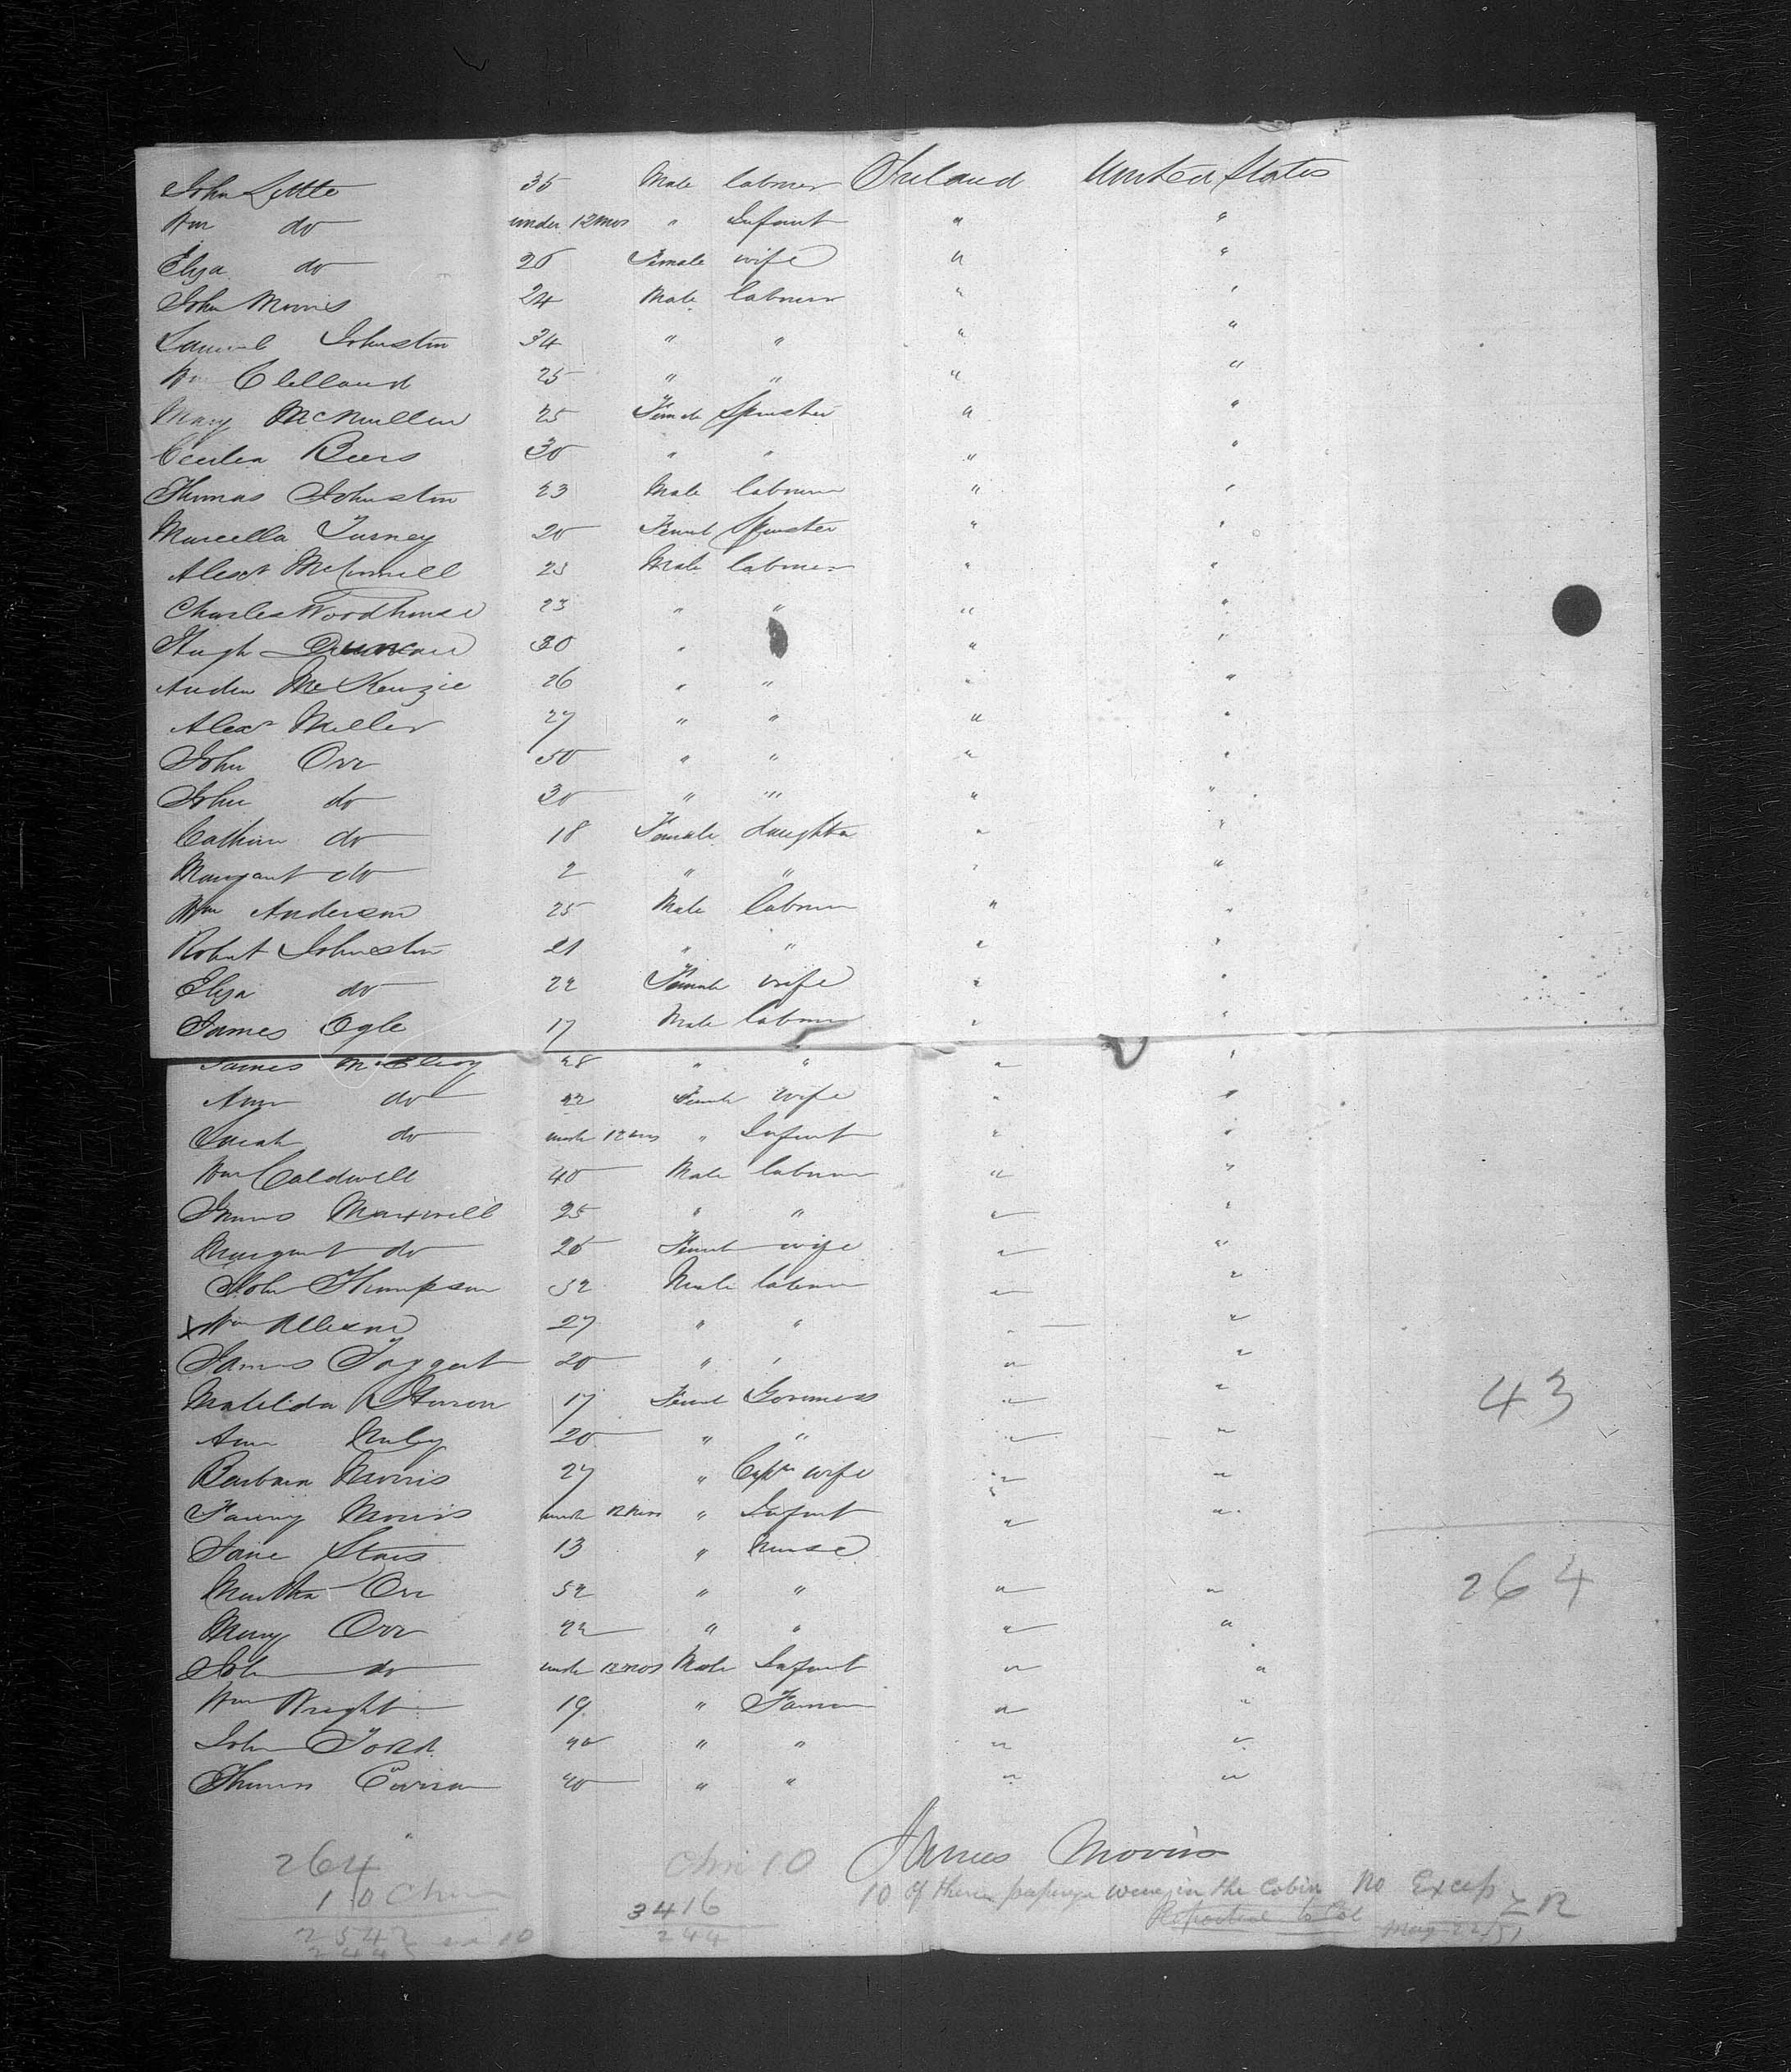 John Little 35 Male labourer Ireland United States
Wm do under 12 mos " Infant " "
Eliza do 26 Female wife " "
John Morris 24 Male labourer " "
Samuel Johnston 34 " " " "
Wm Clelland 25 " " " "
Mary McMullen 25 Female Spinster " "
Cecilia Beers 30 " " " "
Thomas Johnston 23 Male labourer " "
Marcella Turney 20 Femal Spinster " "
Alexr McConnell 23 Male labourer " "
Charles Woodhouse 23 " " " "
Hugh Duncan 30 " " " "
Andrew McKenzie 26 " " " "
Alexr Miller 27 " " " "
John Orr 50 " " " "
John do 30 " " " "
Catherine do 18 Female daughter " "
Margaret do 2 " " " "
Wm Anderson 25 Male labourer " "
Robert Johnston 21 " " " "
Eliza do 22 Female wife " "
James Ogle 17 Male labourer " "
James McElroy 28 " " " "
Ann do 22 Female wife " "
Sarah do under 12 mos " Infant " "
Wm Caldwell 40 Male labourer " "
James Maxwell 25 " " " "
Margaret do 26 Female wife " "
John Thompson 52 Male labourer " "
x Wm 27 " " " "
James Taggert 20 " " " "
Matilda 17 Femal Governess " "
Ann 20 " " " "
Barbara Morris 27 " Captn wife " "
Fanny Morris under 12 mos " Infant " "
Jane 13 " Nurse
Martha Orr 52 " " " "
Mary Orr 22 " " " "
John do under 12 mos Male Infant " "
Wm Wright 19 " Farmer " "
John Todd " " " "
Thomas " " " "
43
264
James Morris
264
10
10 of these passengers were in the Cabin No Excep
3416
244
Reported to Col May 22/51